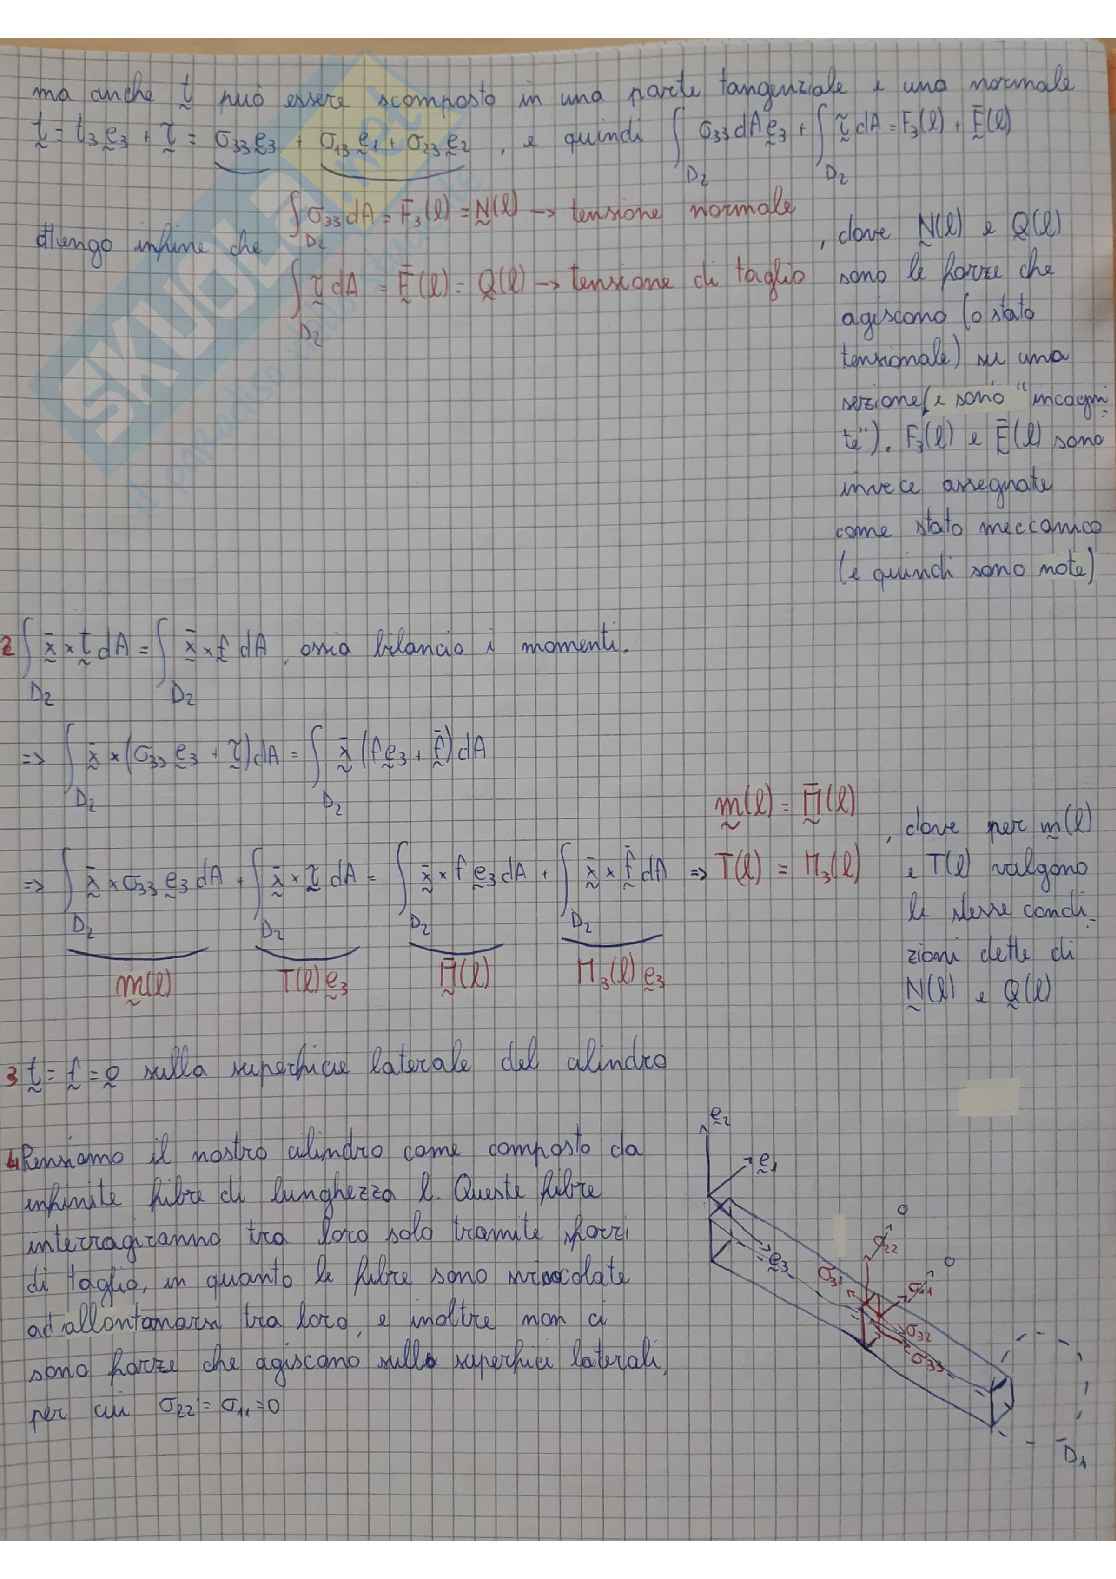 ma anche t può essere scomposto in una parte tangenziale e una normale
t = t₃e₃ + τ = σ₃₃e₃ + σ₁₃e₁ + σ₂₃e₂ , e quindi ∫ σ₃₃dAe₃ + ∫ τ dA = F₃(l) + F̄(l)
D₂ D₂
ottengo infine che ∫ σ₃₃dA = F₃(l) = N(l) → tensione normale
D₂
∫ τ dA = F̄(l) = Q(l) → tensione di taglio
D₂
, dove N(l) e Q(l)
sono le forze che
agiscono (o stato
tensionale) su una
sezione (e sono "incogni-
te"). F₃(l) e F̄(l) sono
invece assegnate
come stato meccanico
(e quindi sono note)
2 ∫ x̄ × t dA = ∫ x̄ × f dA, ossia bilancio i momenti.
D₂ D₂
=> ∫ x̄ × (σ₃₃e₃ + τ)dA = ∫ x̄ (fe₃ + f̄)dA
D₂ D₂
=> ∫ x̄ × σ₃₃e₃dA + ∫ x̄ × τ dA = ∫ x̄ × f e₃dA + ∫ x̄ × f̄ dA =>
D₂ D₂ D₂ D₂
m(l) T(l)e₃ M̄(l) M₃(l)e₃
m(l) = M̄(l)
T(l) = M₃(l)
, dove per m(l)
e T(l) valgono
le stesse condi-
zioni dette di
N(l) e Q(l)
3 t = f = 0 sulla superficie laterale del cilindro
4 Pensiamo il nostro cilindro come composto da
infinite fibre di lunghezza l. Queste fibre
interragiranno tra loro solo tramite sforzi
di taglio, in quanto le fibre sono vincolate
ad allontanarsi tra loro, e inoltre non ci
sono forze che agiscano sulle superfici laterali,
per cui σ₂₂ = σ₁₁ = 0
e₂
e₁
e₃
0
σ₂₂
0
σ₃₁
σ₁₁
σ₃₂
σ₃₃
D₁
SKUOLA.net